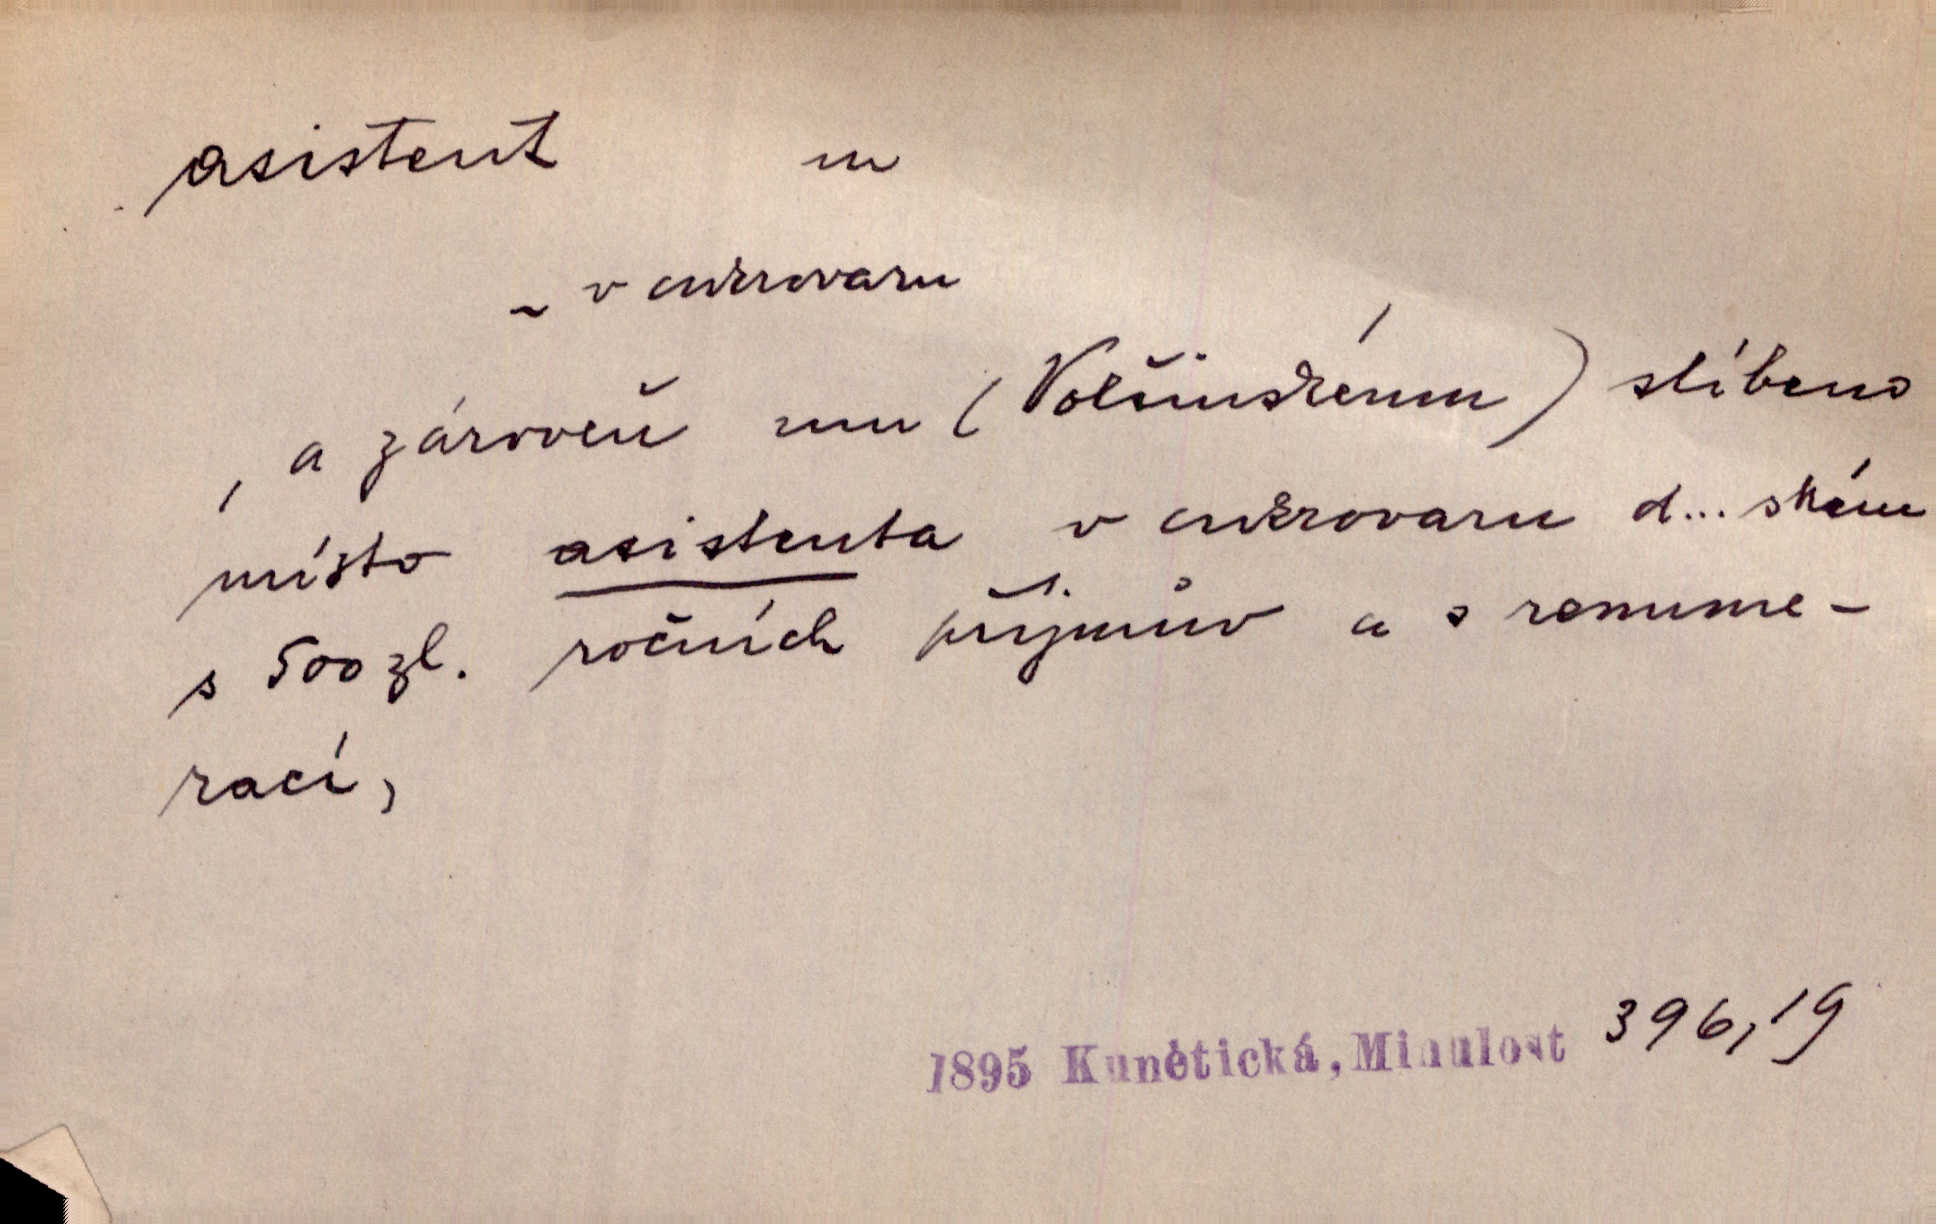 asistent m
~ v cukrovaru
, a zároveň mu (Volšinskému) slíbeno
místo asistenta v cukrovaru d... ském
s 500 zl. ročních příjmův a s remune-
rací,
1895 Kunětická, Minulost 396,19